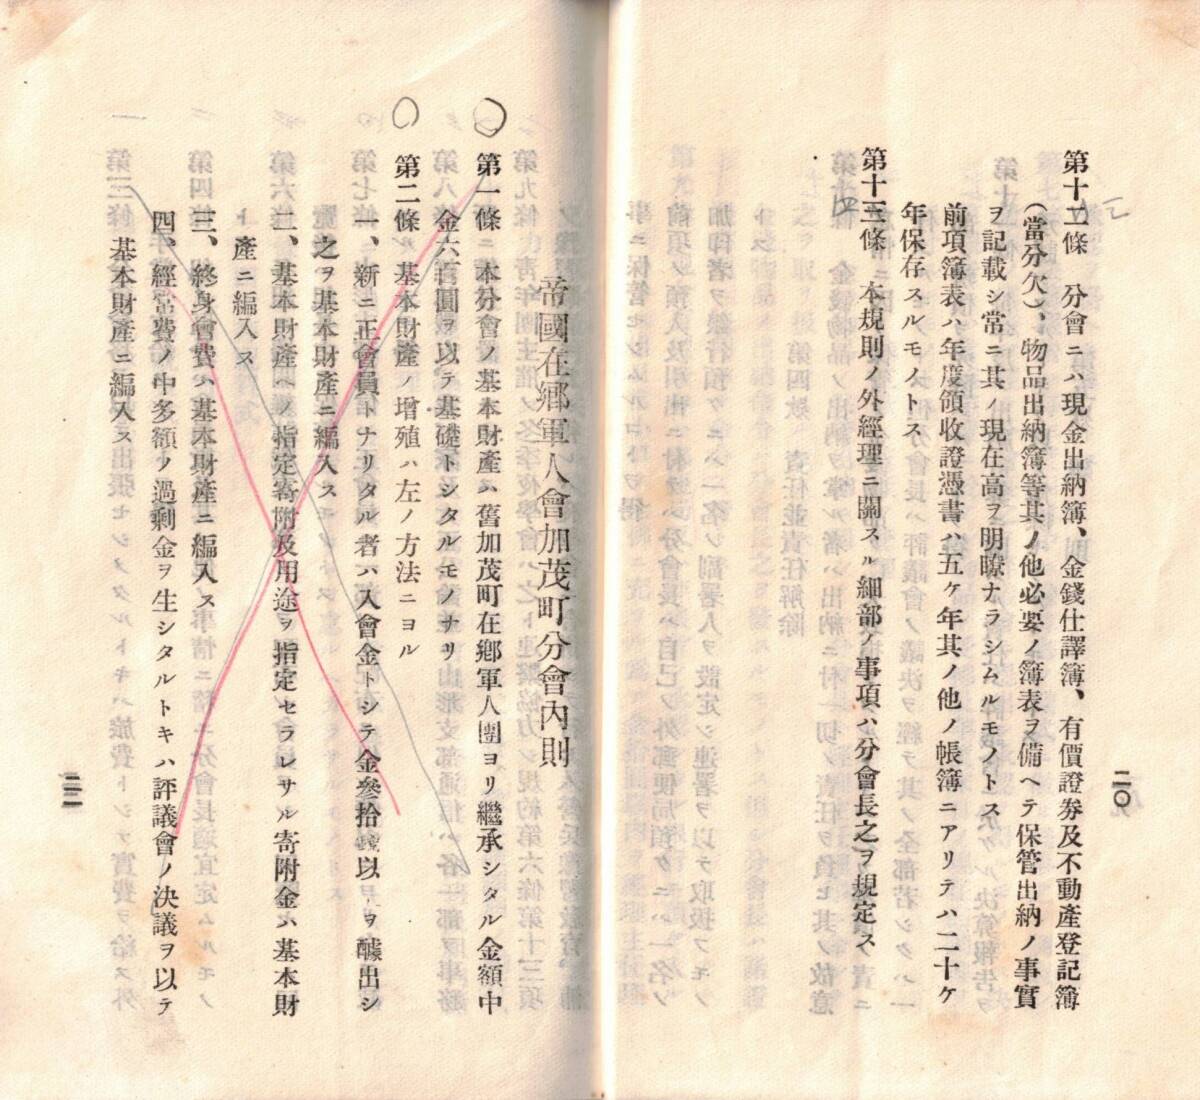 第十二條　分會ニハ現金出納簿、金錢仕譯簿、有價證券及不動產登記簿
(當分欠)、物品出納簿等其ノ他必要ノ簿表ヲ備ヘテ保管出納ノ事實
ヲ記載シ常ニ其ノ現在高ヲ明瞭ナラシムルモノトス
前項簿表ハ年度領收證憑書ハ五ケ年其ノ他ノ帳簿ニアリテハ二十ケ
年保存スルモノトス
第十三條　本規則ノ外經理ニ關スル細部ノ事項ハ分會長之ヲ規定ス
二〇
帝國在鄕軍人會加茂町分會內則
第一條　本分會ノ基本財產ハ舊加茂町在鄕軍人團ヨリ繼承シタル金額中
金六百圓ヲ以テ基礎トシタルモノナリ
第二條　基本財產ノ增殖ハ左ノ方法ニヨル
一、新ニ正會員トナリタル者ハ入會金トシテ金參拾錢以ヲ醵出シ
之ヲ基本財產ニ編入ス
二、基本財產ヘノ指定寄附及用途ヲ指定セラレサル寄附金ハ基本財
產ニ編入ス
三、終身會費ハ基本財產ニ編入ス
四、經常費ノ中多額ノ過剩金ヲ生シタルトキハ評議會ノ決議ヲ以テ
基本財產ニ編入ス
二一